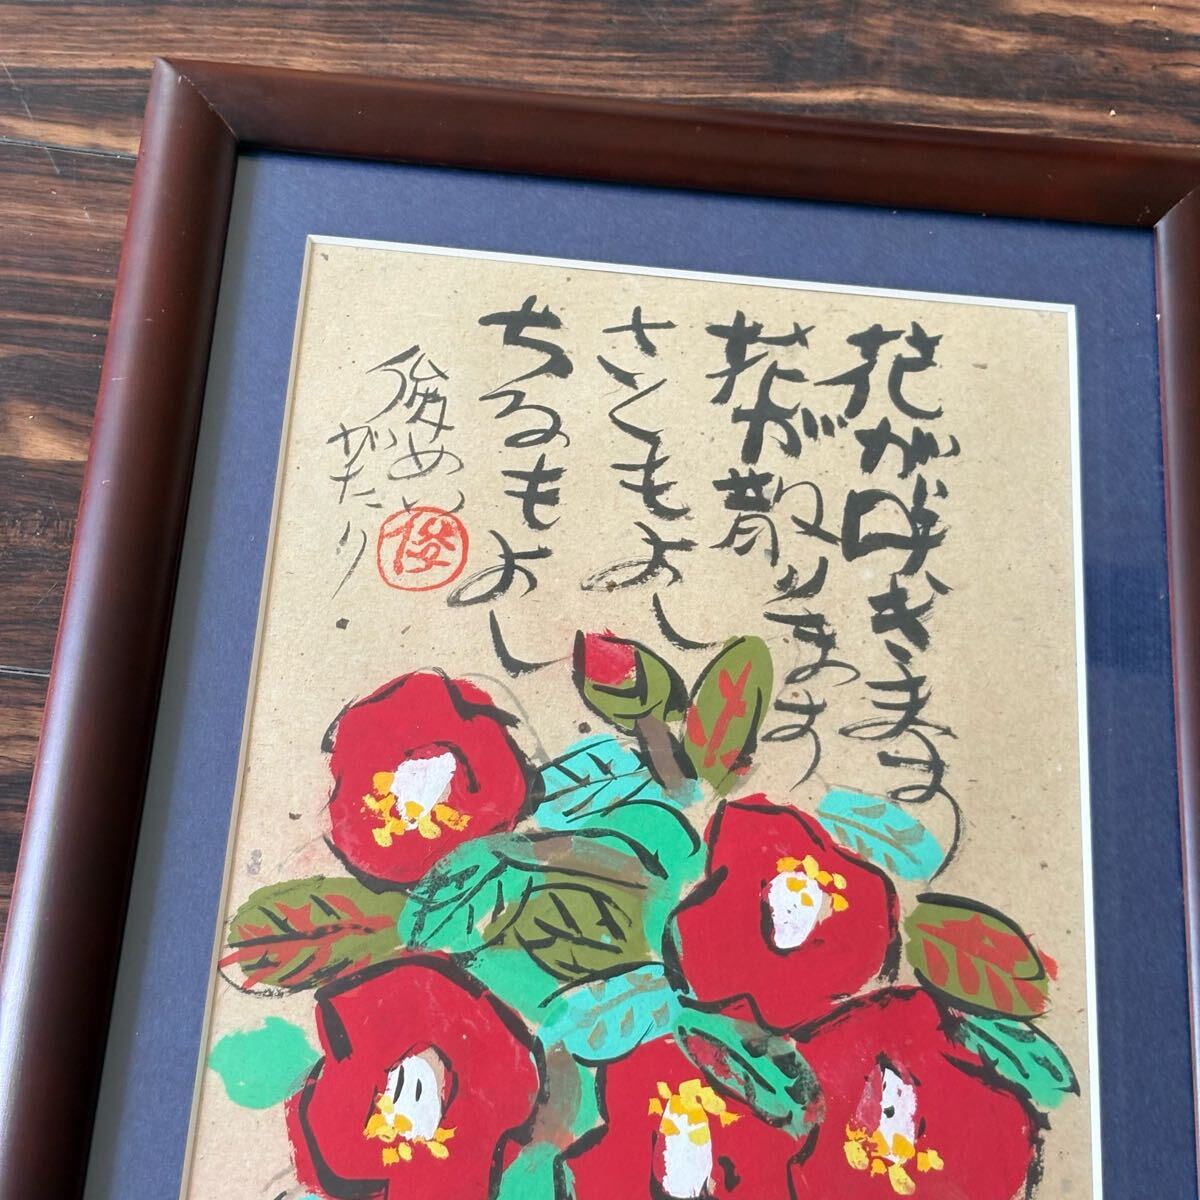 花が咲きます
花が散ります
さくもよし
ちるもよし
がたり
俊